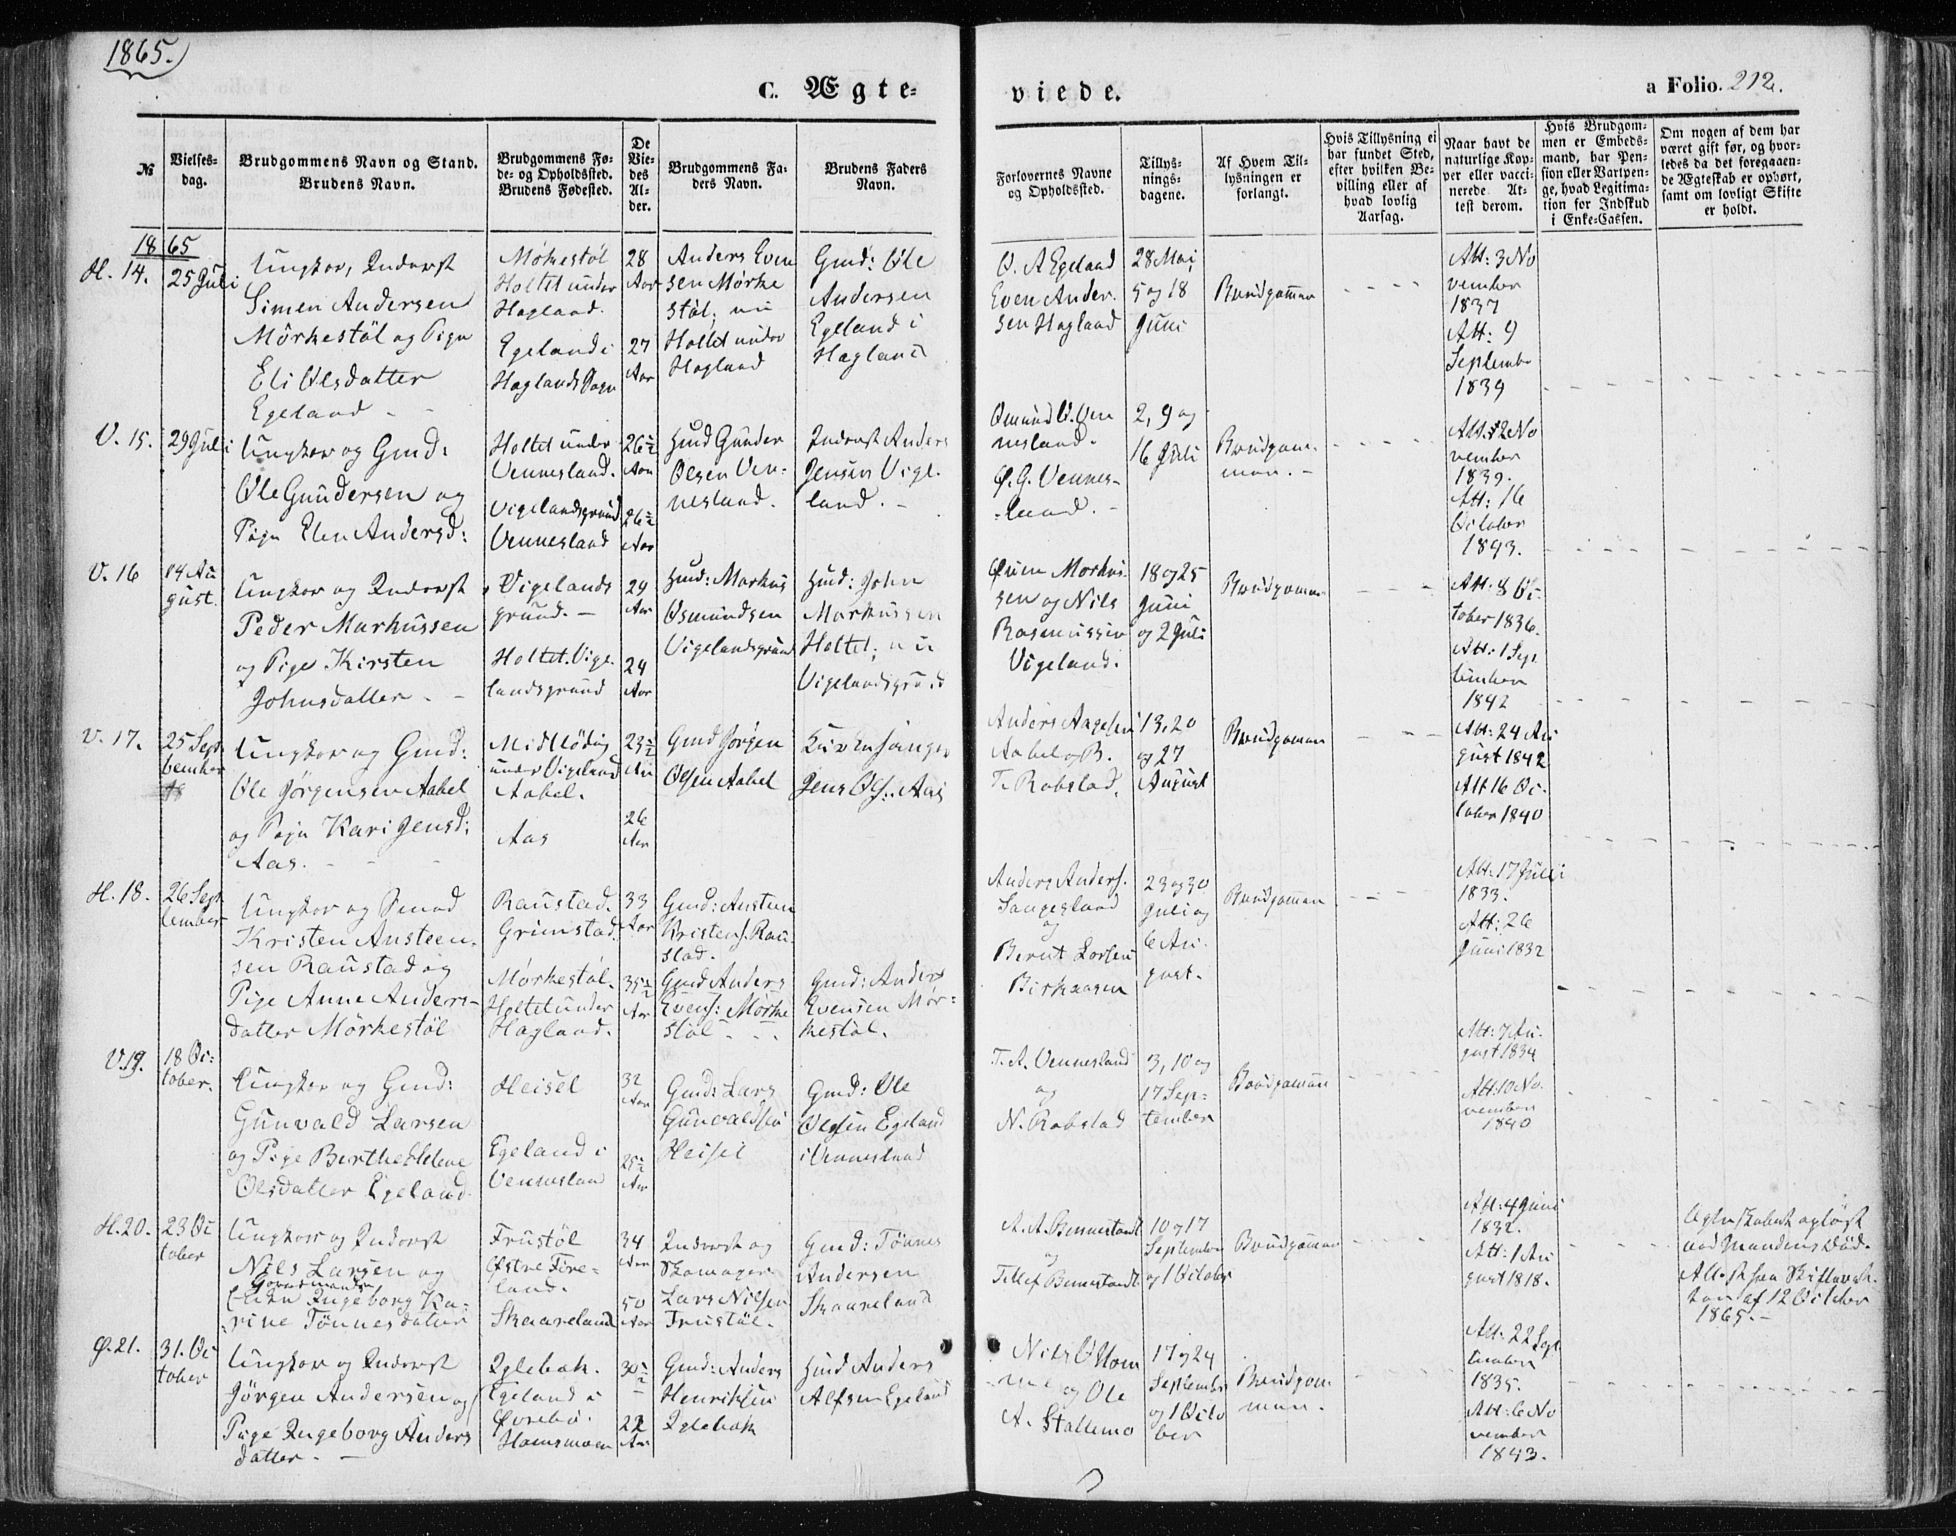 1865.
C. Ægte-
viede.
a Folio. 212.
№
Vielses-
dag.
Brudgommens Navn og Stand.
Brudens Navn.
Brudgommens Fø-
de- og Opholdssted.
Brudens Fødested.
De
Vie-
des
Al-
der.
Brudgommens Fa-
ders Navn.
Brudens Faders
Navn.
Forlovernes Navne
og Opholdssted.
Tillys-
nings-
dagene.
Af Hvem Til-
lysningen er
forlangt.
Hvis Tillysning ei
har fundet Sted,
efter hvilken Be-
villing eller af
hvad lovlig
Aarsag.
Naar havt de
naturlige Kop-
per eller vacci-
nerede. At-
test derom.
Hvis Brudgom-
men er Embeds-
mand, har Pen-
sion eller Vartpen-
ge, hvad Legitima-
tion for Indskud
i Enke-Cassen.
Om nogen af dem har
været gift før, og hvor-
ledes da det foregaaen-
de Ægteskab er ophørt,
samt om lovligt Skifte
er holdt.
1865
H. 14.
25 Juli
Ungkar, Inderst
Simen Andersen
Mörkestöl og Pige
Eli Olsdatter
Egeland -
Mörkestöl
Holtet under
Hagland.
Egeland i
Haglands Sogn
28
Aar
27
Aar
Anders Even
sen Mörke
stöl; nu
Holtet under
Hagland
Gmd: Ole
Andersen
Egeland i
Hagland
O. A Egeland
Even Ander-
sen Hagland
28 Mai
5 og 18
Juni
Brudgommen
Att: 3 No
vember
1837
Att: 9
Septembr
1839
V. 15.
29 Juli
Ungkar og Gmd:
Ole Gundersen og
Pige Elen Andersd:
Holtet under
Vennesland.
Vigelandsgrund
Vennesland
26½
Aar
26½
Aar
Hmd Gunder
Olsen Ven-
nesland.
Inderst Anders
Jensen Vige-
land. -
Osmund O. Ven
nesland.
O. G. Vennes-
land. -
2, 9 og
16 Juli
Brudgom-
men. -
Att. 12 No
vember
1839.
Att: 16
October
1843.
V. 16
14 Au
gust.
Ungkar og Inderst
Peder Markussen
og Pige Kirsten
Johnsdatter. -
Vigelands
grund. -
Holtet. Vige-
landsgrund
29
Aar
24
Aar
Hmd: Markus
Osmundsen
Vigelandsgrund
Hmd: John
Markussen
Holtet; nu
Vigelandsgrund
sen og Nils
Rasmussen
Vigeland.
18 og 25
Juni
og 2 Juli
Brudgommen
Att: 8 Oc-
tober 1836.
Att: 1 Sep
tember
1842
V. 17.
25 Sep
tember
Ungkar og Gmd:
Ole Jörgensen Aabel
og Pige Kari Jensd:
Aas. -
under Vigeland
Aabel.
Aas
23½
Aar
26
Aar
Gmd Jörgen
Olsen Aabel
Kirkesanger
Jens Ols: Aas
Anders Aagesen
Aabel og B.
T. Robstad.
13, 20
og 27
August
Brudgommen
Att: 24 Au
gust 1842
Att 16 Oc-
tober 1840
H. 18.
26 Sep
tember
Ungkar og
Kristen Austeen-
sen Raustad og
Pige Anne Anders-
datter Mörkestöl
Raustad.
Grimstad.
Mörkestöl.
Holtet under
Hagland.
33
Aar
35½
Aar
Gmd: Austeen
Kristens. Rau-
stad.
Gmd Anders
Evens: Mörke
stöl - - -
Gmd: Anders
Evensen Mör-
kestöl.
Anders Anders.
Sangesland
og
Bernt Larsen
Birkaasen
23 og 30
Juli og
6 Au-
gust.
Brudgommen
Att: 17 Juli
1833.
Att: 26
Juni 1832
V. 19.
18 Oc-
tober.
Ungkar og Gmd:
Gunvald Larsen
og Pige Berthe Helene
Olsdatter Egeland
Heisel
Egeland i
Vennesland
32
Aar
25½
Aar
Gmd: Lars
Gunvaldsen
Heisel
Gmd: Ole
Olsen Egeland
i Vennesland
T. A. Vennesland
og
N. Robstad
3, 10 og
17 Sep-
tember
Brudgommen
Att: 7 Au-
gust 1834
Att: 10 No-
vember
1840
H. 20.
23 Oc
tober
Ungkar og Inderst
Nils Larsen og
Enke Ingeborg Ka-
rine Tönnesdatter
Frustöl
Östre Fire-
land.
Skaareland
34
Aar
50
Aar
Inderst og
Skomager
Lars Nilsen
Frustöl.
Gmd: Tönnes
Andersen
Skaareland
A. A. Bennestvedt
og
Tellef Bennestvedt
10 og 17
September
og 1 October
Brudgommen
Att: 4 Juni
1832.
Att: 1 Au
gust 1818.
Ægteskabet oplöst
ved Mandens Död.
Attest fra Skifteret-
ten af 12 October
1865. -
Ø. 21.
31. Oc
tober
Ungkar og Inderst
Jörgen Andersen og
Pige Ingeborg Anders
datter. -
Iglebæk.
Egeland i
Øvrebö.
Homsmoen
30½
22
Aar
Gmd: Anders
Henriksen
Iglebæk
Hmd Anders
Alfsen Egeland
Nils O Hom
me og Ole
A. Stallemo
17 og 24
September
og 1 Octo
ber
Brudgom
men.
Att: 22 Sept
tember
1835.
Att: 6 No
vember
1843.